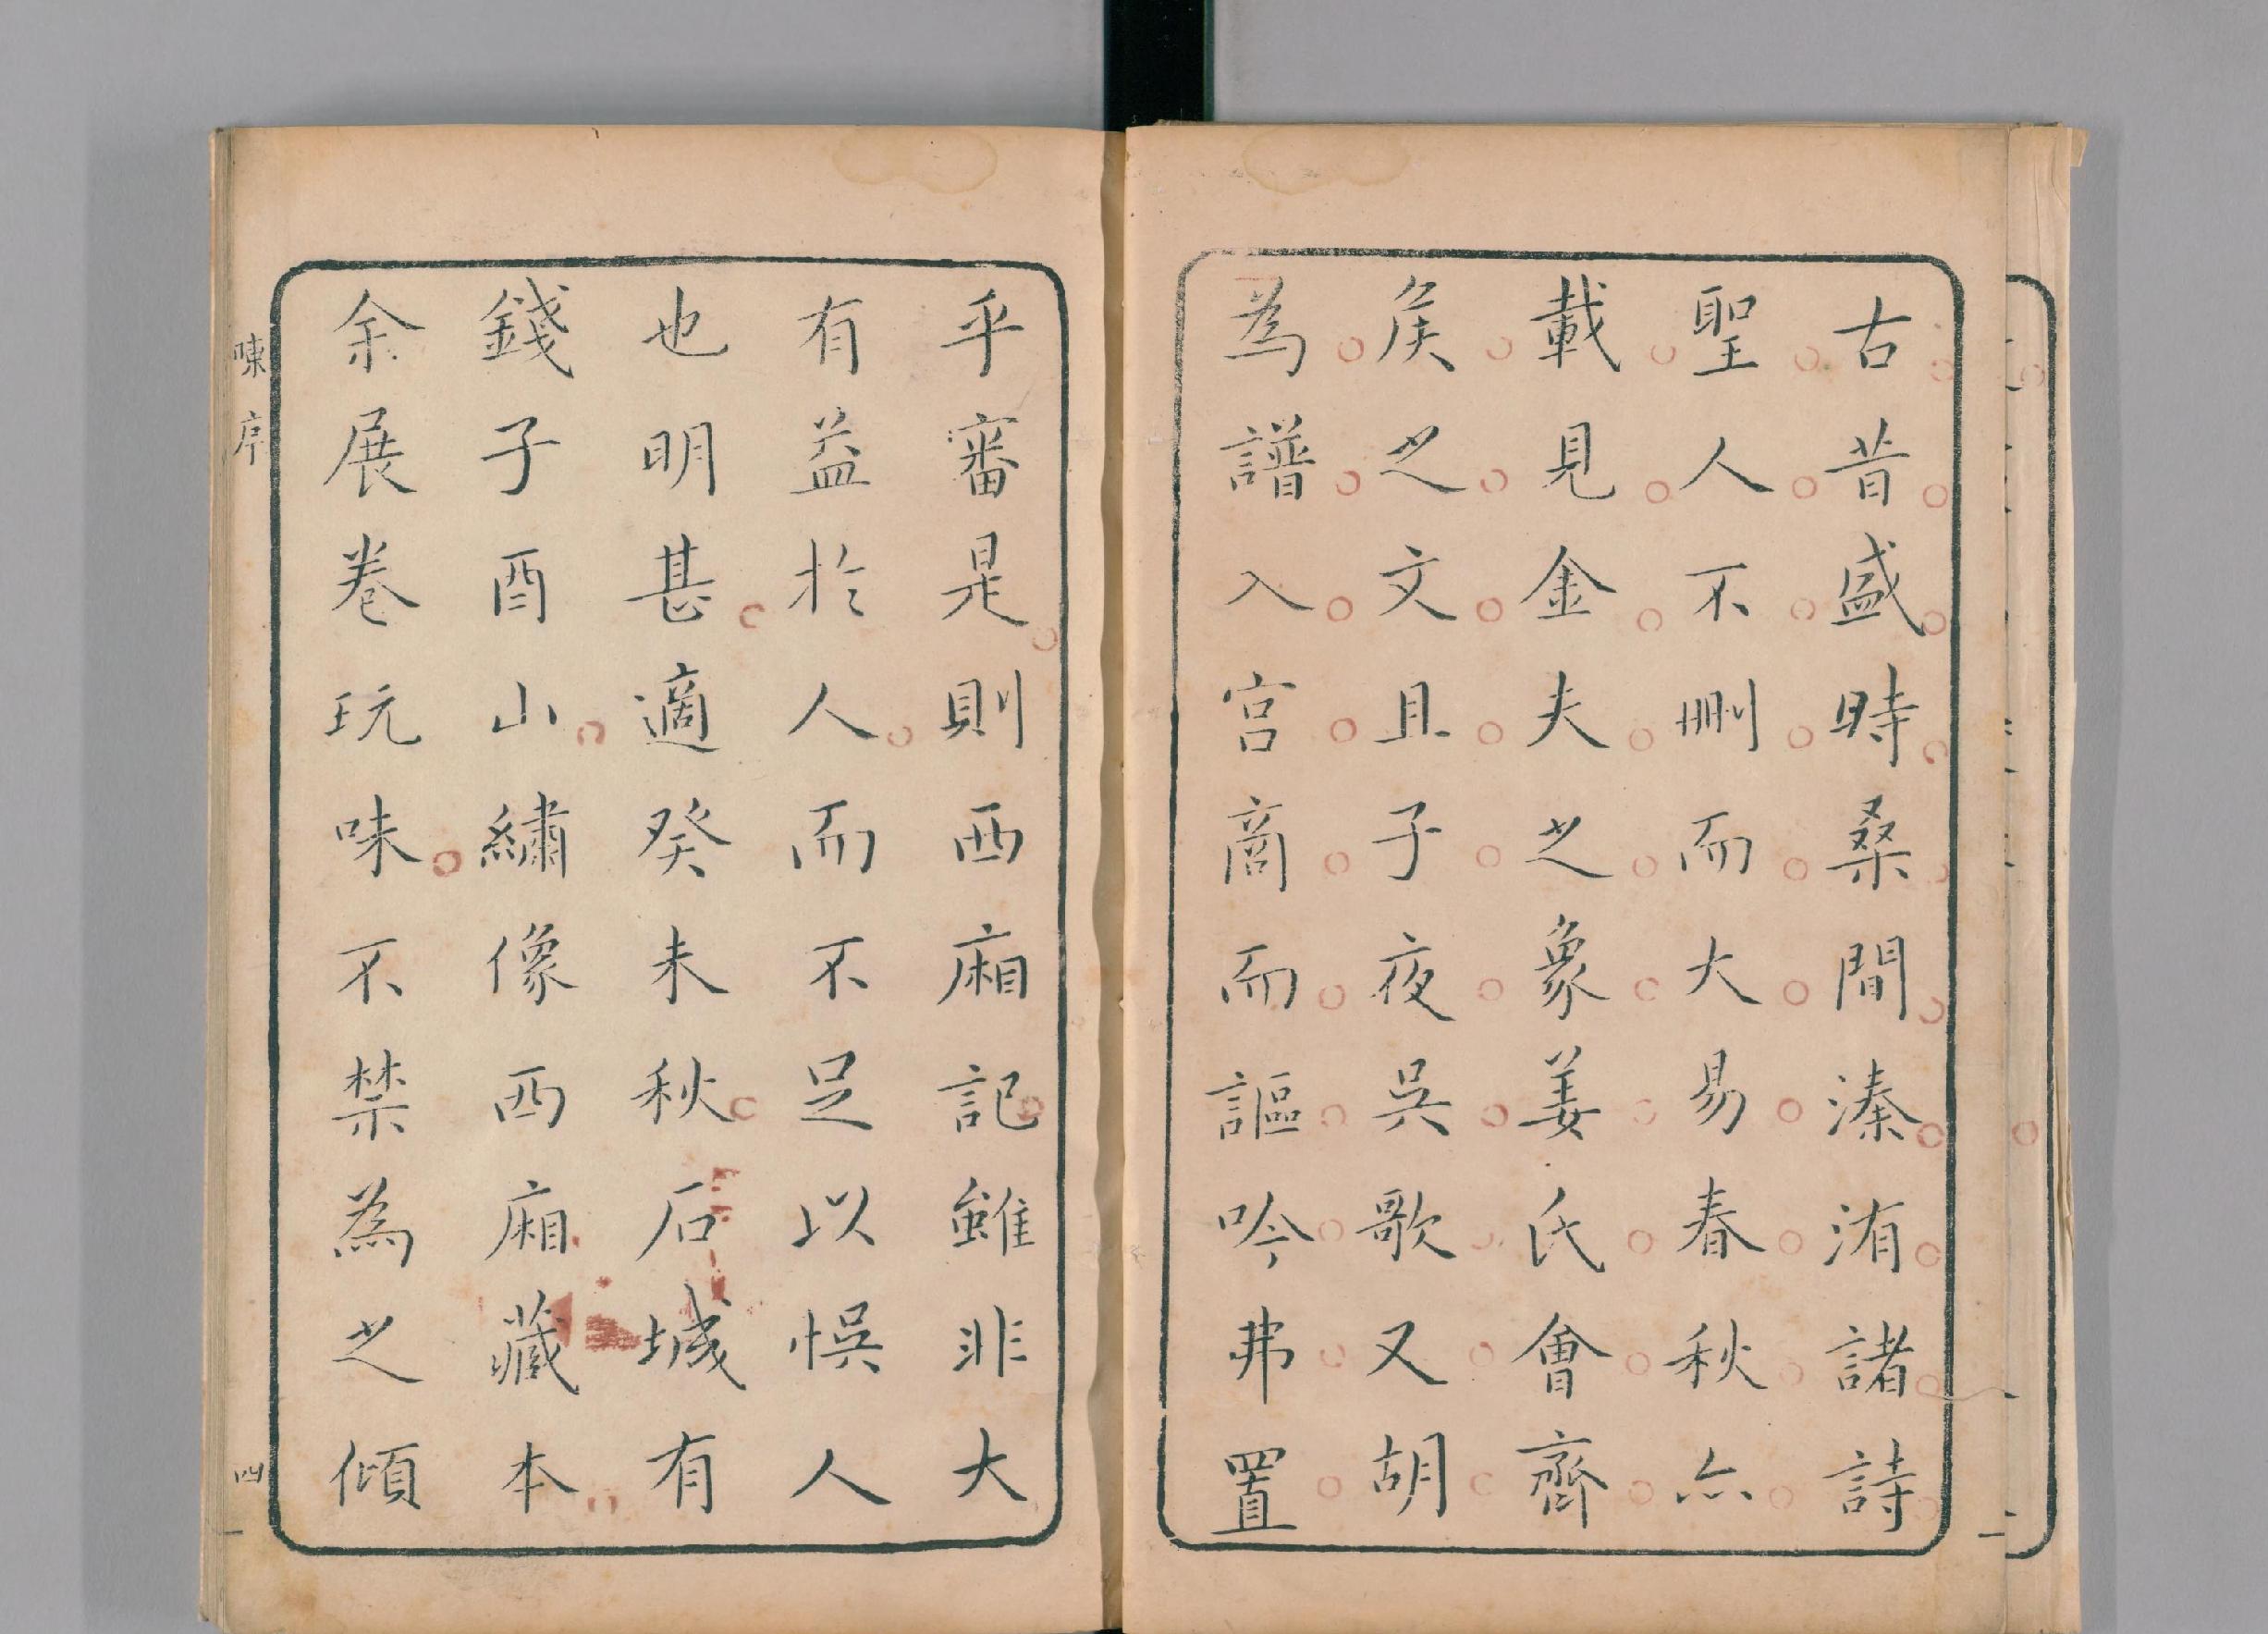 古昔盛時桑間溱洧諸詩
聖人不刪而大易春秋亦
載見金夫之象姜氏會齊
矦之文且子夜吳歌又胡
為譜入宮商而謳吟弗置
乎審是則西廂記雖非大
有益於人而不足以悞人
也明甚適癸未秋石城有
錢子酉山繡像西廂藏本
余展卷玩味不禁為之傾
陳序
四